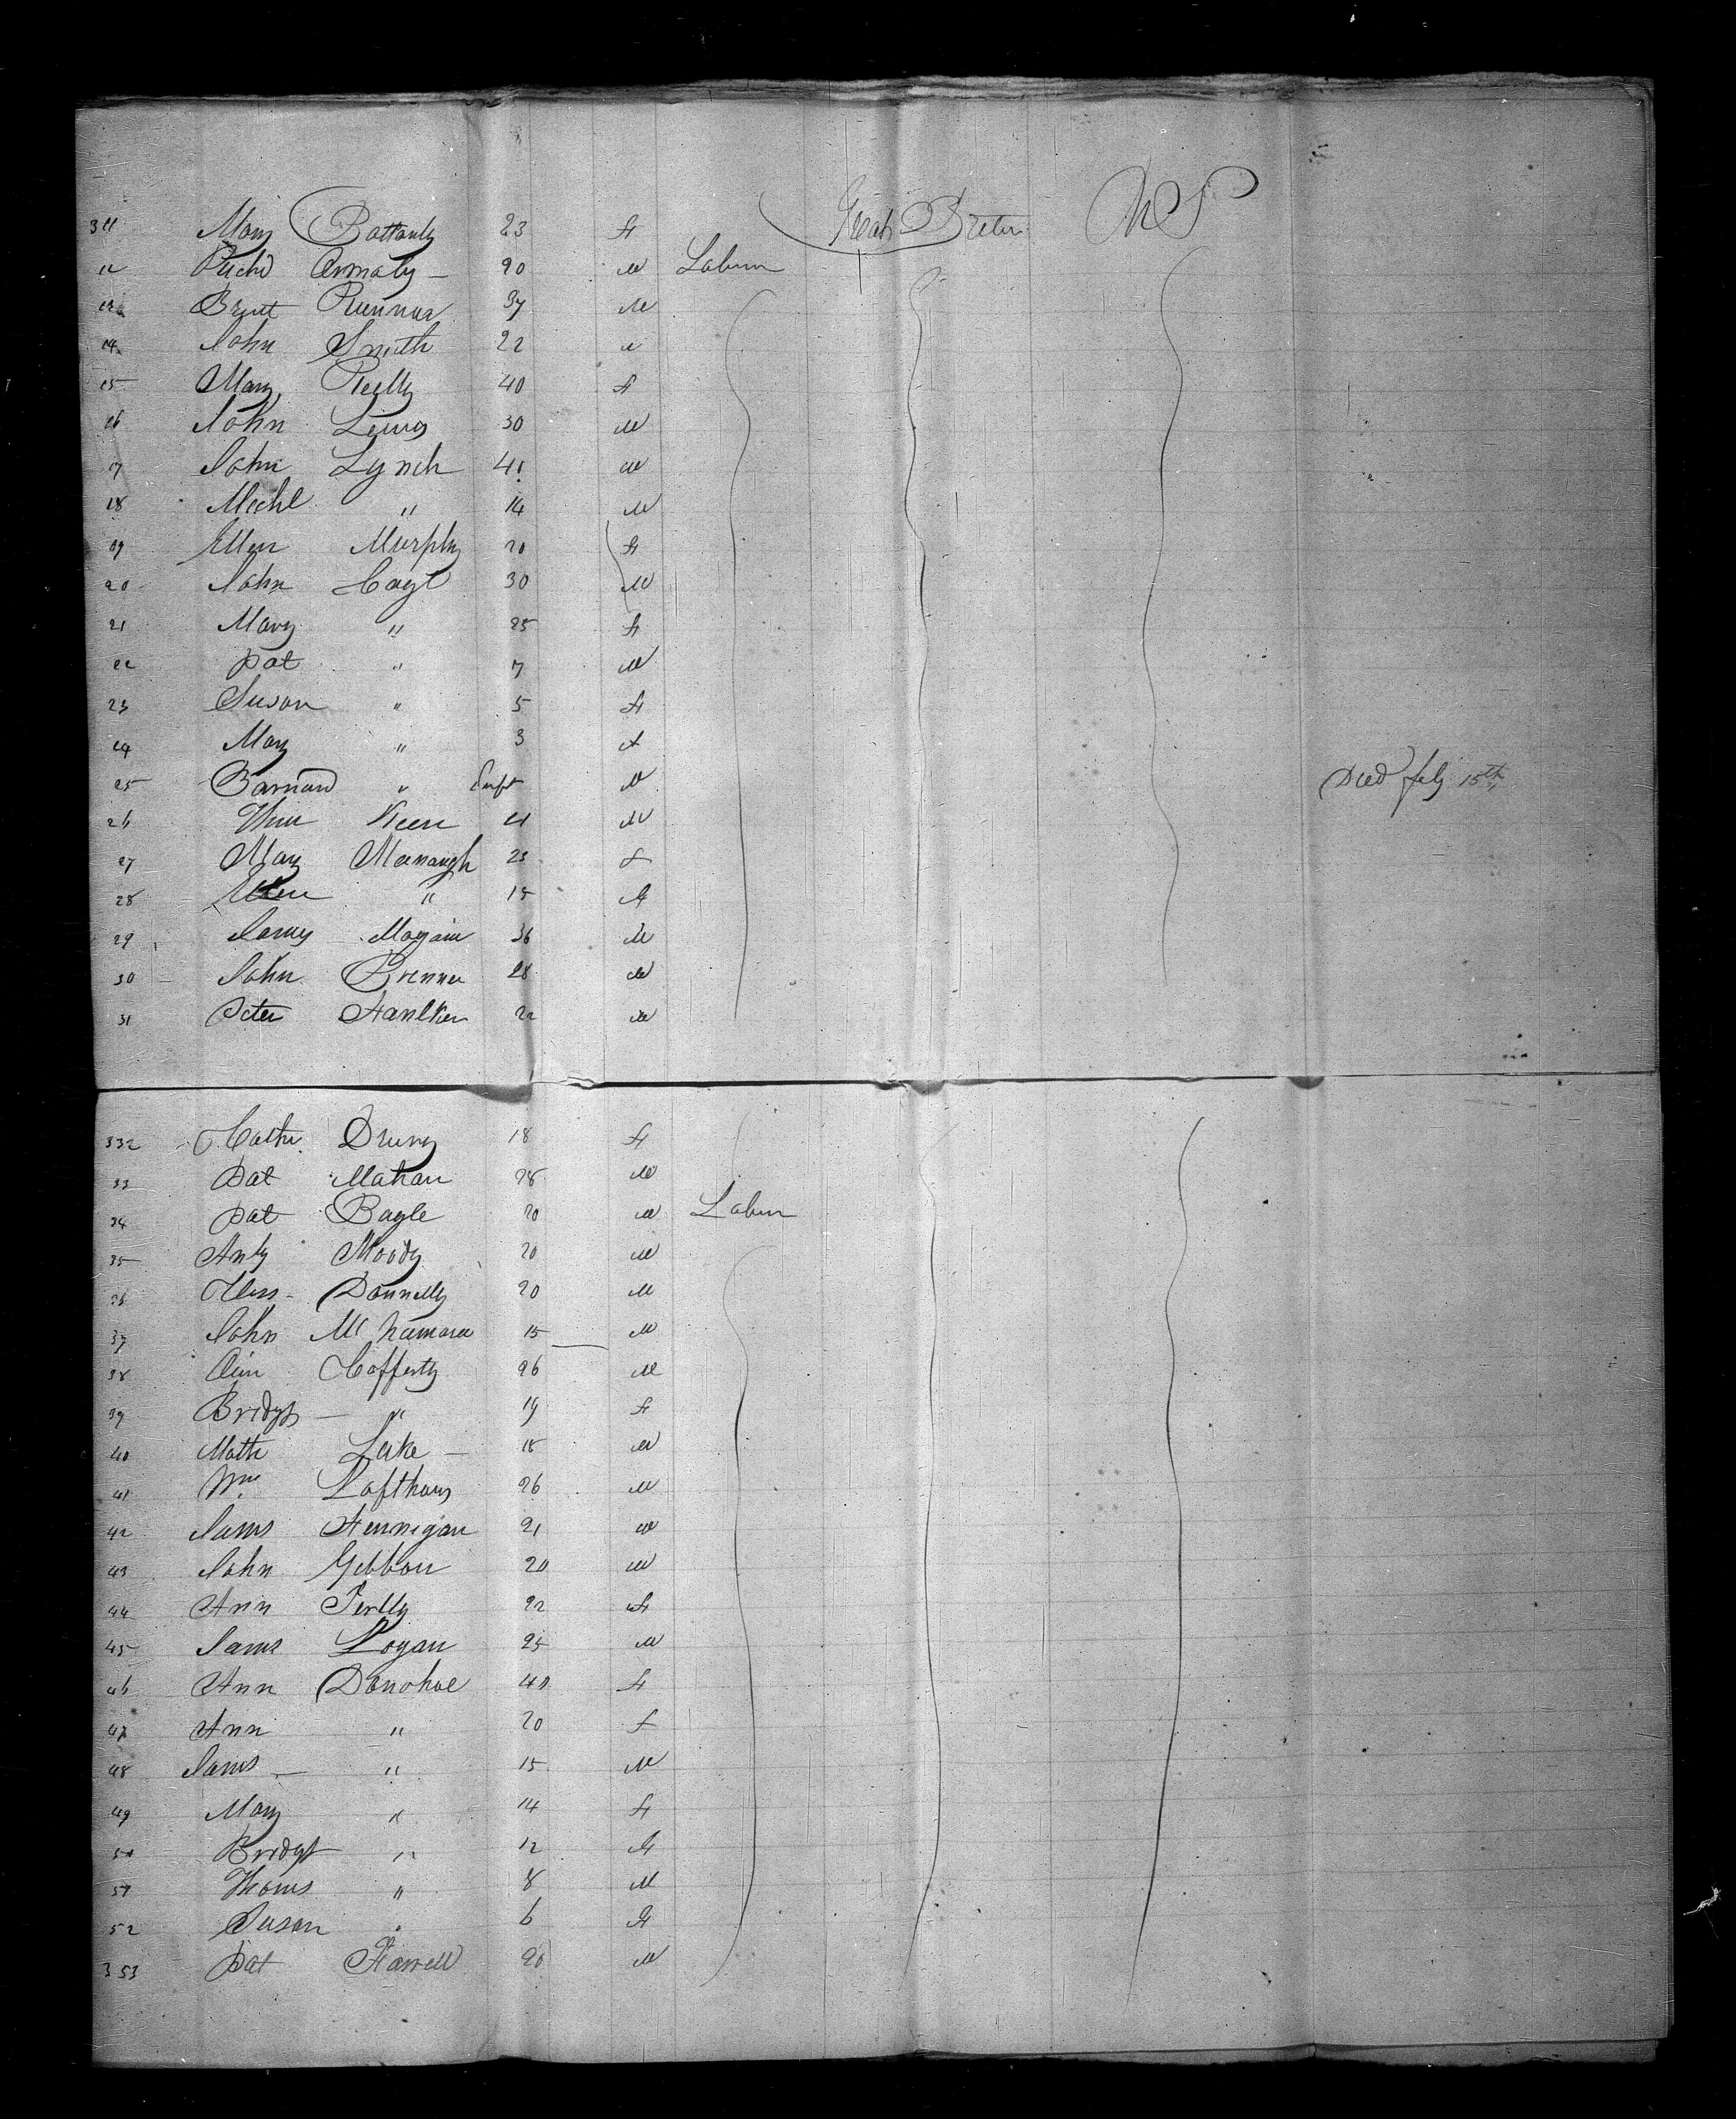 311 Mary Battanly 23 f Great Briten U S
12 Richd Ormsby - 20 M Labour
13 Brnt 37 M
14 John Smith 22 M
15 Mary Reilly 40 f
16 John 30 M
17 John Lynch 41 M
18 Michl " 14 M
19 Ellen Murphy 20 f
20 John Coyl 30 M
21 Mary " 25 f
22 Pat " 7 M
23 Susan " 5 f
24 Mary " 3 f
25 Barnard " Inft M Died July 15th
26 Keen 21 M
27 Mary 23 f
28 Ellen " 15 f
29 James 36 M
30 John Brenna 28 M
31 Peter 22 M
332 Cathr. Drury 18 f
33 Pat Mahan 28 M
34 Pat Bagle 20 M Labour
35 Anty Moody 20 M
36 Donnelly 20 M
37 John Mc Namara 15 M
38 Cafferty 26 M
39 Bridgt - " 19 f
40 Math Lake - 18 M
41 Wm Lofthous 26 M
42 James Hennigan 21 M
43 John Gibbon 20 M
44 Ann 22 f
45 James Logan 25 M
46 Ann Donohoe 40 f
47 Ann " 20 f
48 James - " 15 M
49 Mary " 14 f
50 Bridgt " 12 f
51 Thoms " 8 M
52 Susan " 6 f
353 Pat Farrell 20 M